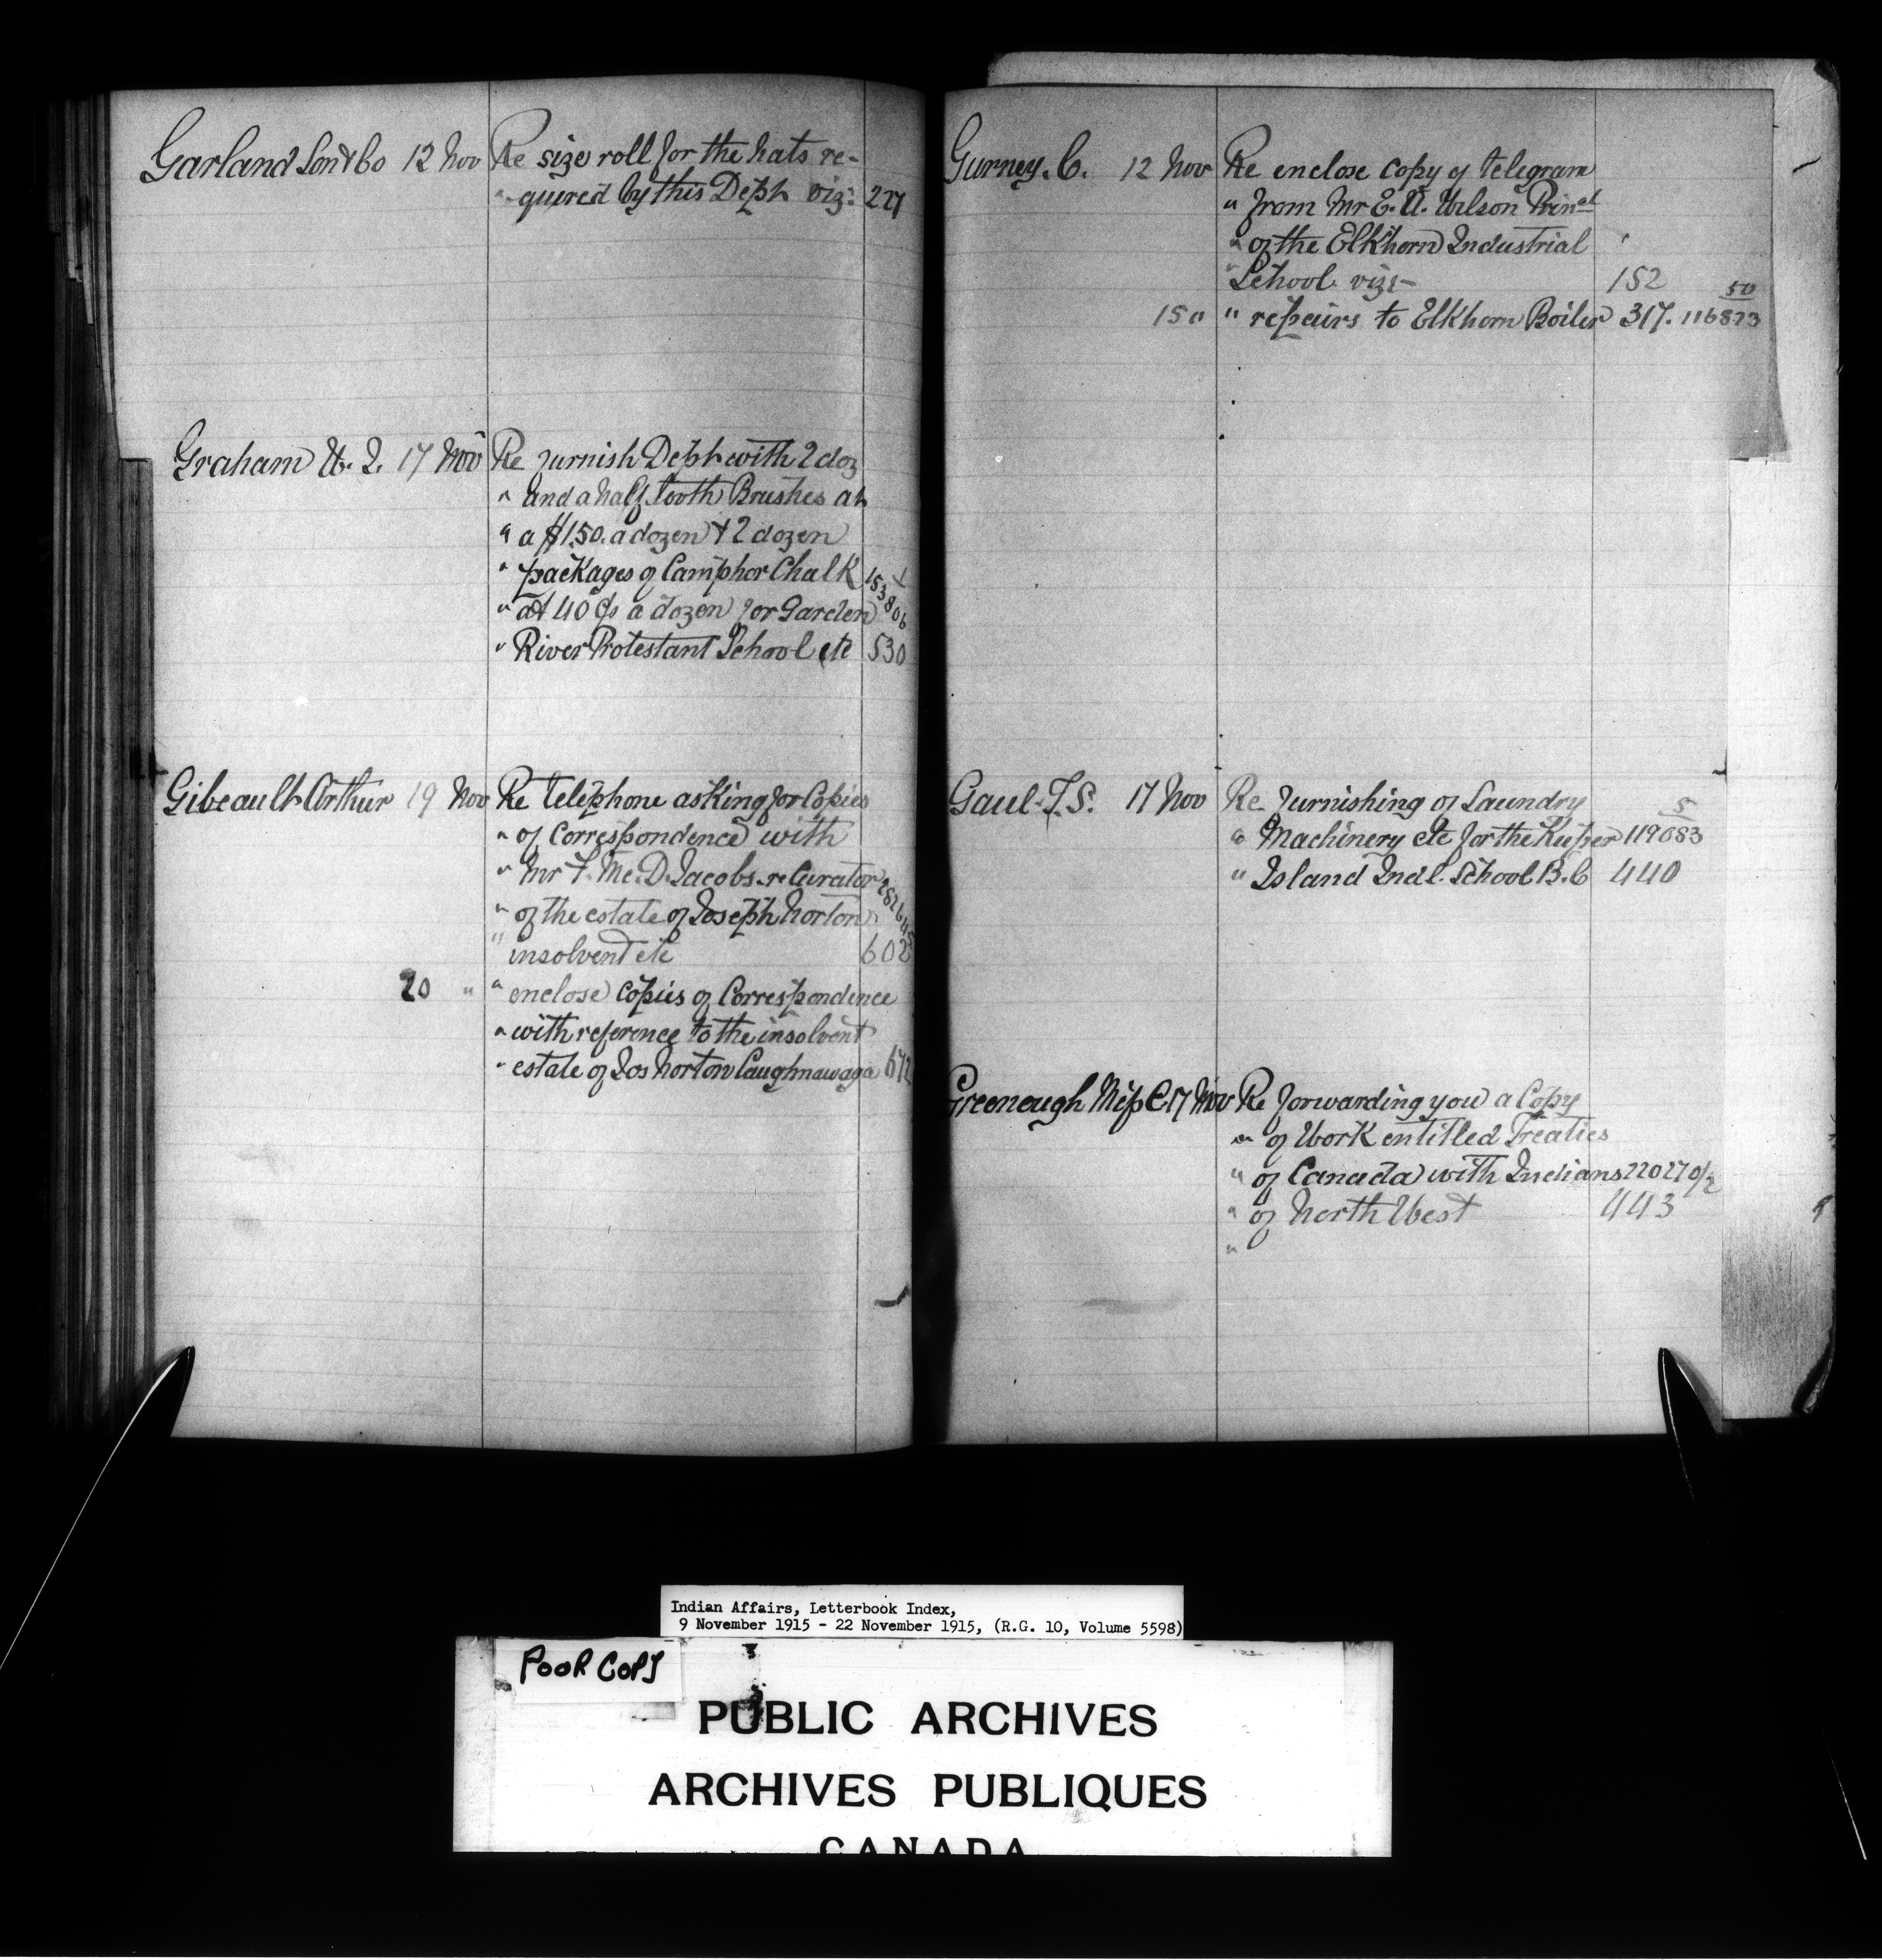 Garland Son & Co 12 Nov Re size roll for the hats re-
" quired by this Dept viz: 227
Graham W. J. 17 Nov Re furnish Dept with 2 doz
" and a half tooth Brushes at
" a $1.50. a dozen & 2 dozen
" packages of Camphor Chalk 153806
" at 40 c/s a dozen for Garden
" River Protestant School etc 530
Gibeault Arthur 19 Nov Re telephone asking for Copies
" of Correspondence with
" Mr F. Mc. D. Jacobs. re Curator
" of the estate of Joseph Norton
" insolvent etc 602
20 " " enclose copies of Correspondence
" with reference to the insolvent
" estate of Jos Norton Caughnawaga 672
Gurney. C. 12 Nov Re enclose copy of telegram
" from Mr E. A. Wilson Prinal
" of the Elkhorn Industrial
" School vizs- 152
15 " " repairs to Elkhorn Boiler 317. 116823 50
Gaul. T. S. 17 Nov Re furnishing of Laundry 5
" Machinery etc for the Kuper 119083
" Island Indl. School B.C 440
Greeneugh Miss C 17 Nov Re forwarding you a Copy
" of Work entitled Treaties
" of Canada with Indians 22027 0/2
" of North West 443
"
Indian Affairs, Letterbook Index,
9 November 1915 - 22 November 1915, (R.G. 10, Volume 5598)
POOR COPY
PUBLIC ARCHIVES
ARCHIVES PUBLIQUES
CANADA